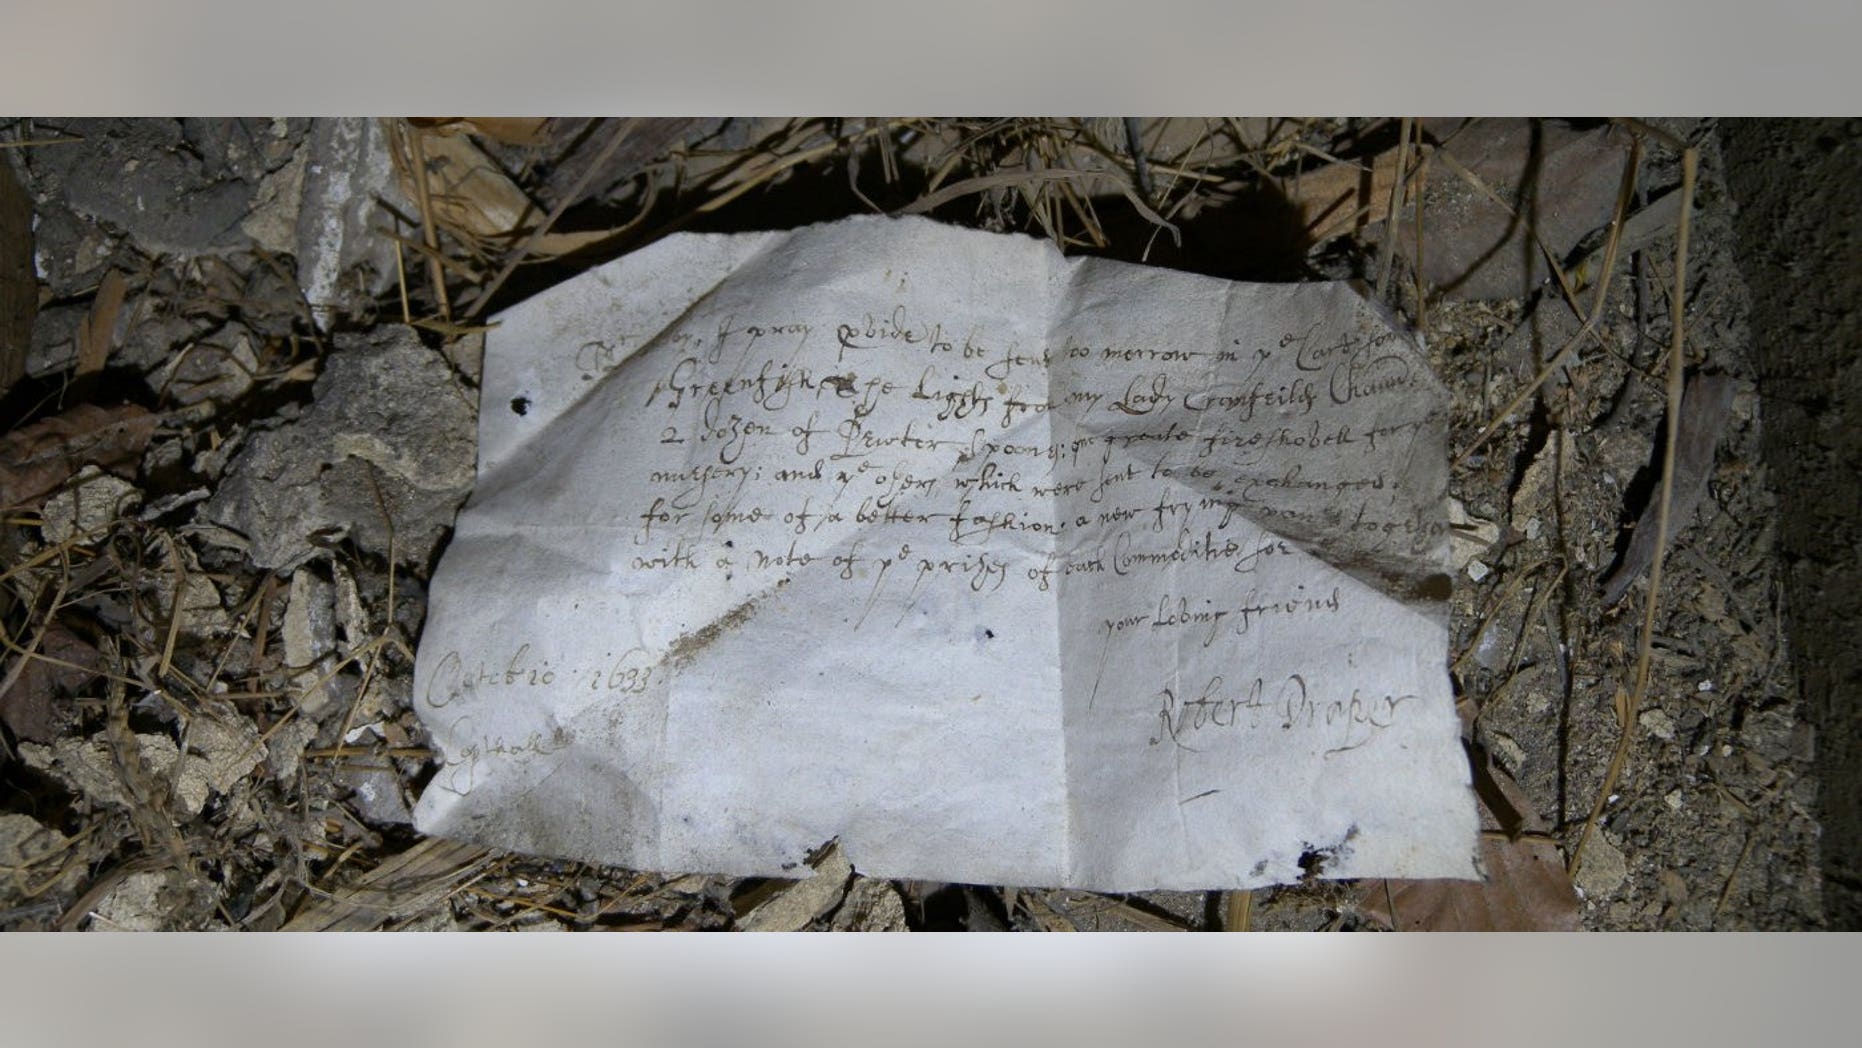 I pray pvide to be sent too morrow in ye Cart for
Greenfish, ye Lights from my Lady Cranfeilds Cham
2 dozen of Pewter spoons: one greate fireshovell for ye
nursery; and ye others which were sent to be exchanged
for some of a better fashion, a new frying pan togeth
with a note of ye prises of each Commoditie for
your loving friend
Octobre 1633.
Robert Draper
Copthall